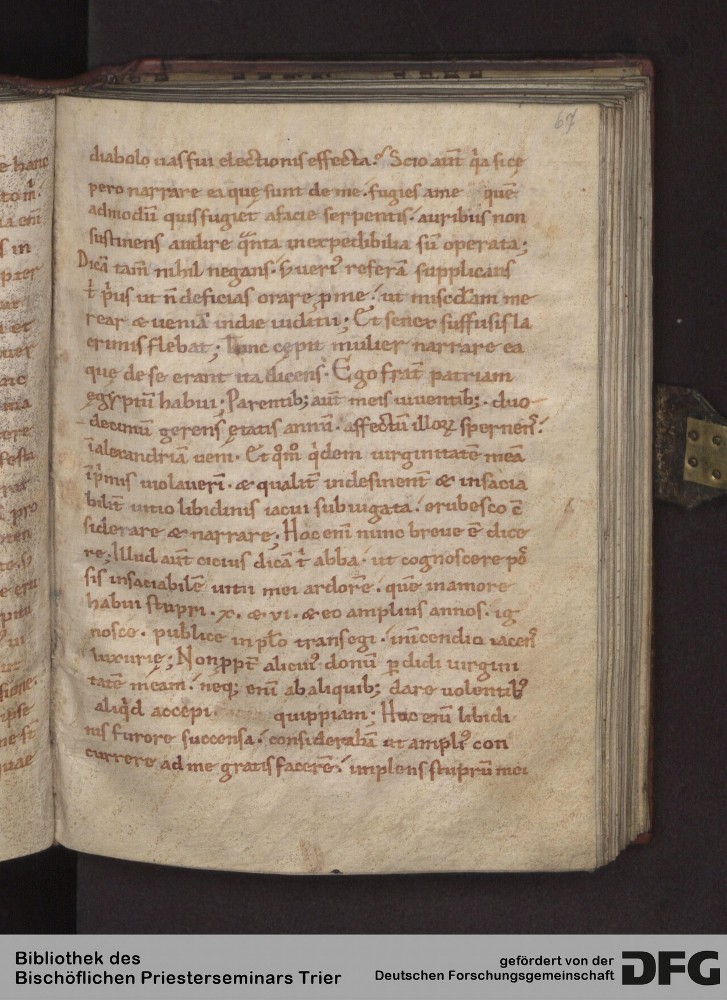 67
diabolo uas fui electionis effecta? Scio aut̄ q̇a si cę
pero narrare ea quę sunt de me. fugies a me quē
admodū quis fugiet a facie serpentis. auribus non
sustinens audire q̄nta inexpedibilia sū operata;
Dicā tam̄ nihil negans. referā supplicans
t̄ p̄us ut n̄ deficias orare ꝑ me. ut misc̄dīam me
rear & ueniā in die iudicii; Et senex suffusis la
crimis flebat; Tunc cępit mulier narrare ea
quę de se erant ita dicens. Ego frat̄ patriam
egyptū habui; Parentib; aut̄ meis uiuentib;. duo
decimū gerens ętatis annū. affectū illoꝝ spernens.
ī alexandriā ueni. Et q̇dem uirginitatē meā
īp̄mis uiolauerī. & qualit̄ indesinent̄ & insacia
bilit̄ uitio libidinis iacui subiugata. erubesco c̄
siderare & narrare; Hoc enī nunc breue ē dice
re; Illud aut̄ cicius dicā t̄ abba. ut cognoscere pos
sis insaciabilē uitii mei ardorē. quē in amore
habui stupri. x. & vi. & eo amplius annos. ig
nosce. publice in pl̄o transegi. inīcendio iacens
luxurię; Non ꝓpt̄ alicui' donū ꝑdidi uirgini
tatē meam. neq; enī ab aliquib; dare uolentib'
aliq̇d accepi. quippiam; Hoc enī libidi
nis furore succensa. considerabā ut ampli' con
currere ad me gratis facerē. implens stuprū mei
Bibliothek des
Bischöflichen Priesterseminars Trier
gefördert von der
Deutschen Forschungsgemeinschaft
DFG